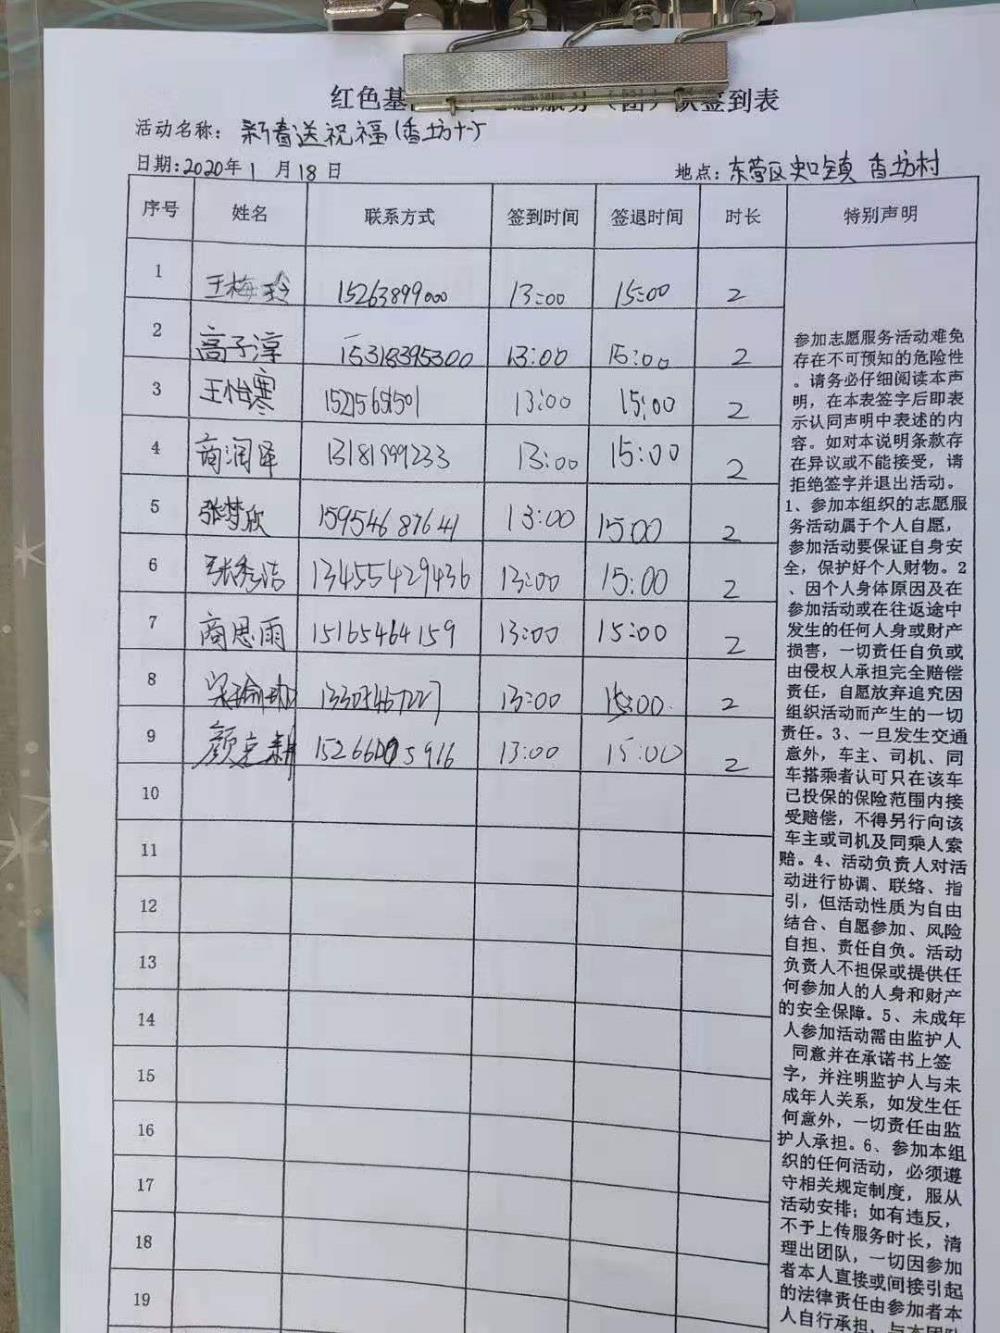 红色基 志愿服务（团）队签到表
活动名称：新春送祝福(香坊村)
日期：2020年1月18日 地点：东营区史口镇 香坊村
序号 姓名 联系方式 签到时间 签退时间 时长 特别声明
1 王梅玲 15263899000 13:00 15:00 2
2 高子淳 15318395300 13:00 15:00 2
3 王怡寒 13:00 15:00 2
4 商润泽 13181999233 13:00 15:00 2
5 张梦欣 15954687641 13:00 15:00 2
6 张秀洁 13455429436 13:00 15:00 2
7 商思雨 15165464159 13:00 15:00 2
8 13305467227 13:00 15:00 2
9 颜 13:00 15:00 2
10
11
12
13
14
15
16
17
18
19
参加志愿服务活动难免
存在不可预知的危险性
。请务必仔细阅读本声
明，在本表签字后即表
示认同声明中表述的内
容。如对本说明条款存
在异议或不能接受，请
拒绝签字并退出活动。
1、参加本组织的志愿服
务活动属于个人自愿，
参加活动要保证自身安
全，保护好个人财物。2
、因个人身体原因及在
参加活动或在往返途中
发生的任何人身或财产
损害，一切责任自负或
由侵权人承担完全赔偿
责任，自愿放弃追究因
组织活动而产生的一切
责任。3、一旦发生交通
意外，车主、司机、同
车搭乘者认可只在该车
已投保的保险范围内接
受赔偿，不得另行向该
车主或司机及同乘人索
赔。4、活动负责人对活
动进行协调、联络、指
引，但活动性质为自由
结合、自愿参加、风险
自担、责任自负。活动
负责人不担保或提供任
何参加人的人身和财产
的安全保障。5、未成年
人参加活动需由监护人
同意并在承诺书上签
字，并注明监护人与未
成年人关系，如发生任
何意外，一切责任由监
护人承担。6、参加本组
织的任何活动，必须遵
守相关规定制度，服从
活动安排；如有违反，
不予上传服务时长，清
理出团队，一切因参加
者本人直接或间接引起
的法律责任由参加者本
人自行承担，与本团队